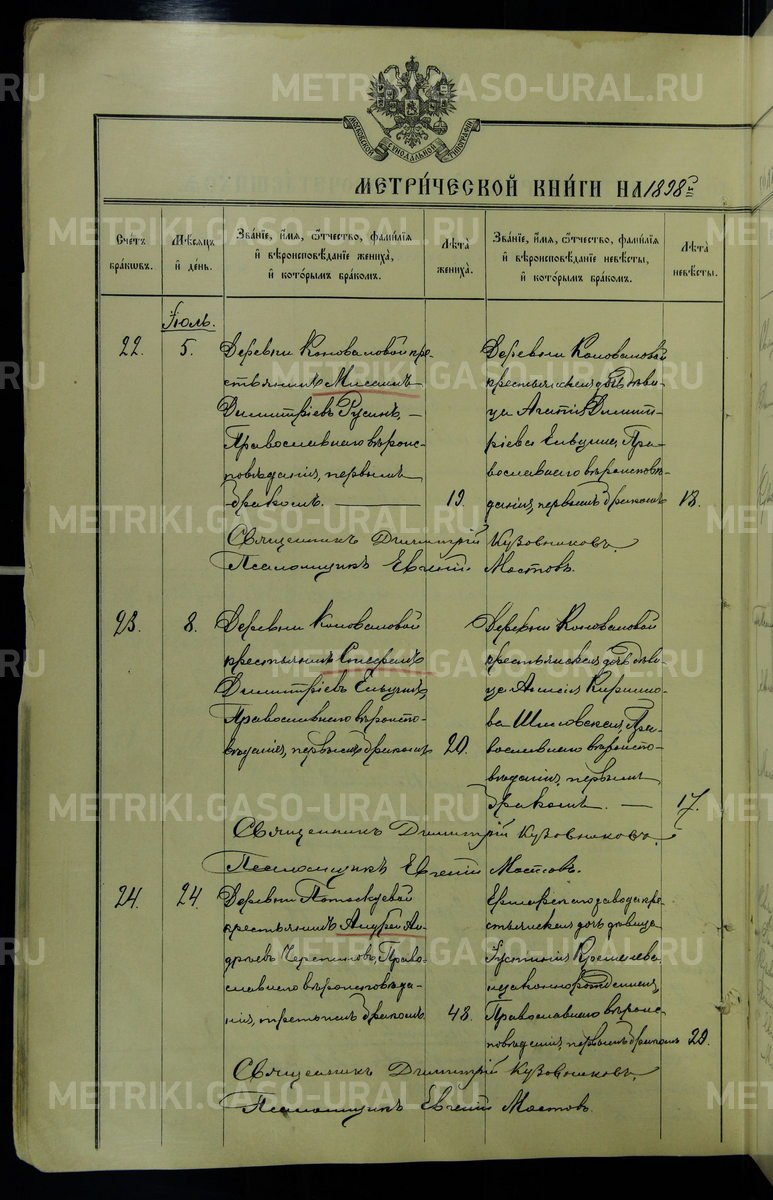 МОСКОВСКОЙ СУНОДАЛЬНОЙ ТИПОГРАФІИ
МЕТРИ́ЧЕСКОЙ КНИ́ГИ НА 1898 г.
Сче́тъ бра́кωвъ.
Мѣ́сяцъ и҆ де́нь.
Зва́нїе, и҆́мя, ѻ҆́тчество, фами́лїя и҆ вѣроисповѣ́данїе жениха̀, и҆ кото́рымъ бра́комъ.
Лѣ́та жениха̀.
Зва́нїе, и҆́мя, ѻ҆́тчество, фами́лїя и҆ вѣроисповѣ́данїе невѣ́сты, и҆ кото́рымъ бра́комъ.
Лѣ́та невѣ́сты.
Іюль.
22.
5.
Деревни Коноваловой кре-
стьянинъ Мисаилъ
Димитріевъ Русинъ, —
Православнаго вѣроис-
повѣданія, первымъ
бракомъ. —
19.
Деревни Коноваловой
крестьянская дочь дѣви-
ца Агнія Димит-
ріева Ельцина, Пра-
вославнаго вѣроисповѣ-
данія, первымъ бракомъ
18.
Священникъ Димитрій Кузовниковъ.
Псаломщикъ Евгеній Мостовъ.
23.
8.
Деревни Коноваловой
крестьянинъ Стефанъ
Димитріевъ Ельцинъ,
Православнаго вѣроиспо-
вѣданія, первымъ бракомъ
20.
Деревни Коноваловой
крестьянская дочь дѣви-
ца Кирилло-
ва Шиловская, Пра-
вославнаго вѣроиспо-
вѣданія, первымъ
бракомъ. —
17.
Священникъ Димитрій Кузовниковъ.
Псаломщикъ Евгеній Мостовъ.
24.
24.
Деревни
крестьянинъ Андрей Ан-
дреевъ Черепановъ, Право-
славнаго вѣроисповѣда-
нія, третьимъ бракомъ
48.
завода кре-
стьянская дочь дѣвица
Іустинія
незаконнорожденная,
Православнаго вѣроис-
повѣданія, первымъ бракомъ
29.
Священникъ Димитрій Кузовниковъ.
Псаломщикъ Евгеній Мостовъ.
METRIKI.GASO-URAL.RU